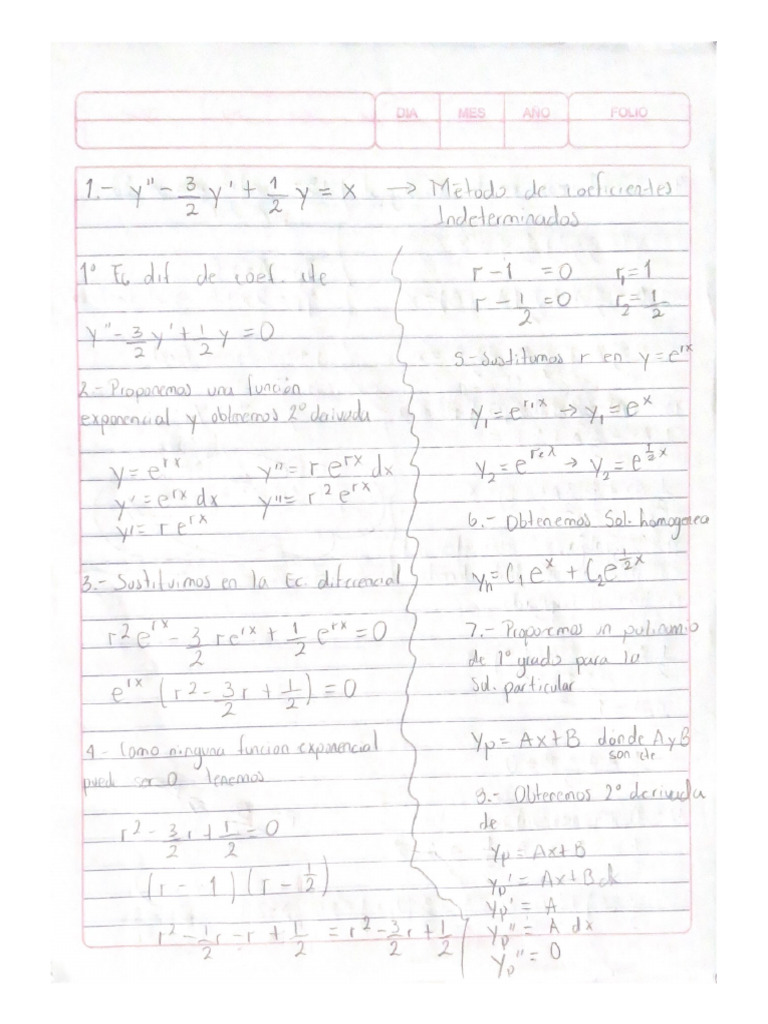 DIA MES AÑO FOLIO
1.- y'' - 3/2 y' + 1/2 y = x → Método de coeficientes
Indeterminados
1° Ec dif de coef. cte
y'' - 3/2 y' + 1/2 y = 0
2.- Proponemos una función
exponencial y obtenemos 2° derivada
y = e^rx y'' = r e^rx dx
y' = e^rx dx y'' = r^2 e^rx
y' = r e^rx
3.- Sustituimos en la Ec. diferencial
r^2 e^rx - 3/2 r e^rx + 1/2 e^rx = 0
e^rx (r^2 - 3/2 r + 1/2) = 0
4.- Como ninguna función exponencial
puede ser 0 tenemos
r^2 - 3/2 r + 1/2 = 0
(r - 1)(r - 1/2)
r^2 - 1/2 r - r + 1/2 = r^2 - 3/2 r + 1/2
r - 1 = 0 r₁ = 1
r - 1/2 = 0 r₂ = 1/2
5.- Sustitumos r en y = e^rx
y₁ = e^r₁x → y₁ = e^x
y₂ = e^r₂x → y₂ = e^1/2x
6.- Obtenemos Sol. homogenea
yh = C₁e^x + C₂e^1/2x
7.- Proponemos un polinomio
de 1° grado para la
Sol. particular
yp = Ax + B donde A y B
son cte
8.- Obtenemos 2° derivada
de
yp = Ax + B
yp' = Ax + B dx
yp' = A
yp'' = A dx
yp'' = 0